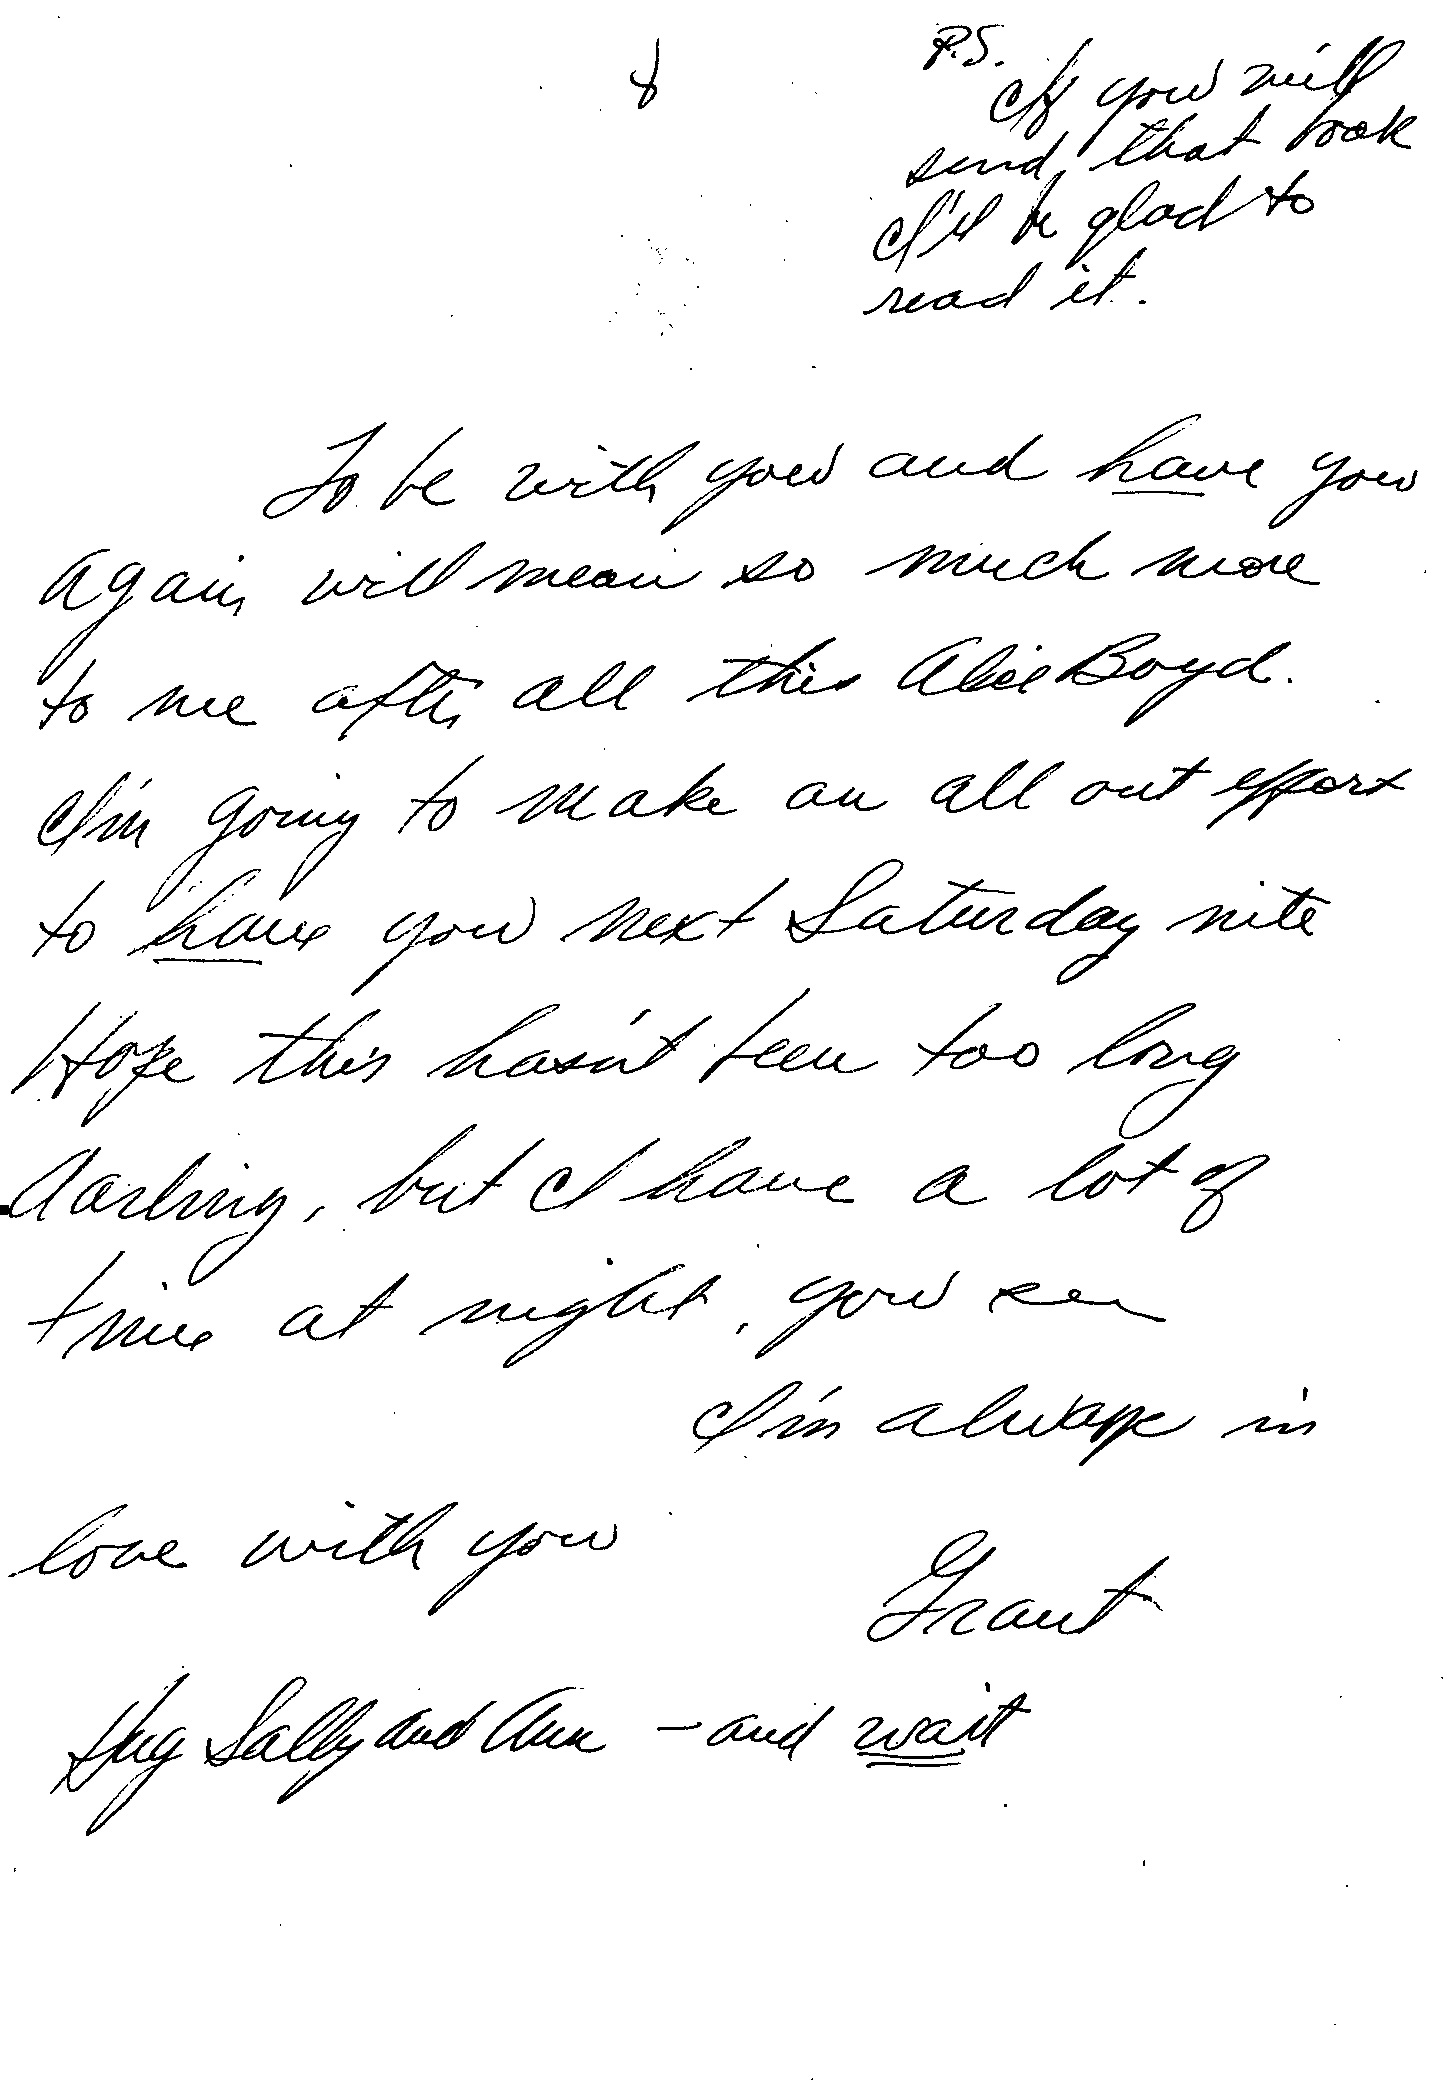 8
P.S.
If you will
send that book
I'll be glad to
read it.
To be with you and have you
again, will mean so much more
to me after all this Alice Boyd.
I'm going to make an all out effort
to have you next Saturday nite
Hope this hasn't been too long
darling, but I have a lot of
time at night, you see
I'm always in
love with you
Grant
Hug Sally and Ann - and wait